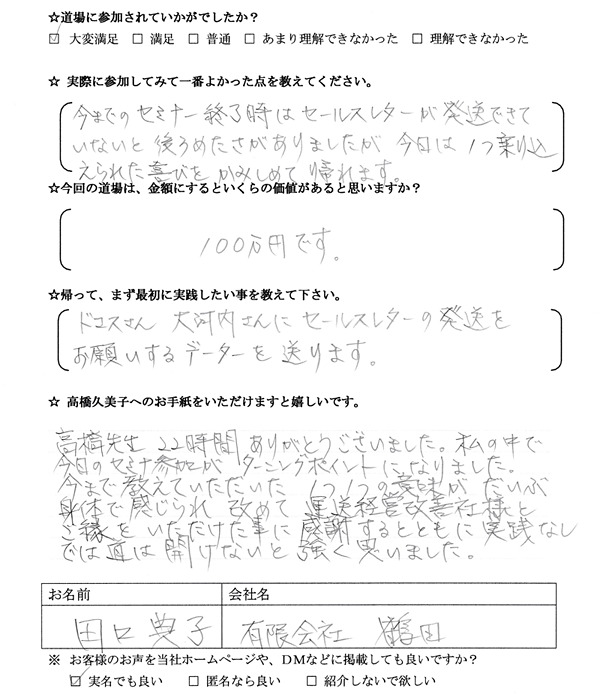 ☆道場に参加されていかがでしたか？
☑ 大変満足 □ 満足 □ 普通 □ あまり理解できなかった □ 理解できなかった
☆ 実際に参加してみて一番よかった点を教えてください。
今までのセミナー終了時はセールスレターが発送できて
いないと後ろめたさがありましたが 今日は1つ乗り込
えられた喜びをかみしめて帰れます。
☆今回の道場は、金額にするといくらの価値があると思いますか？
100万円です。
☆帰って、まず最初に実践したい事を教えて下さい。
ドコスさん 大河内さんに セールスレターの発送を
お願いするデーターを送ります。
☆ 高橋久美子へのお手紙をいただけますと嬉しいです。
高橋先生 22時間 ありがとうございました。私の中で
今日のセミナ参加が ターニングポイントになりました。
今まで教えていただいた 1つ1つの意味が だいぶ
身体で感じられ 改めて 運送経営改善社様と
ご縁をいただけた事に感謝するとともに実践なし
では道は開けないと強く思いました。
お名前 会社名
田口 典子 有限会社 鶴田
※ お客様のお声を当社ホームページや、ＤＭなどに掲載しても良いですか？
☑ 実名でも良い □ 匿名なら良い □ 紹介しないで欲しい